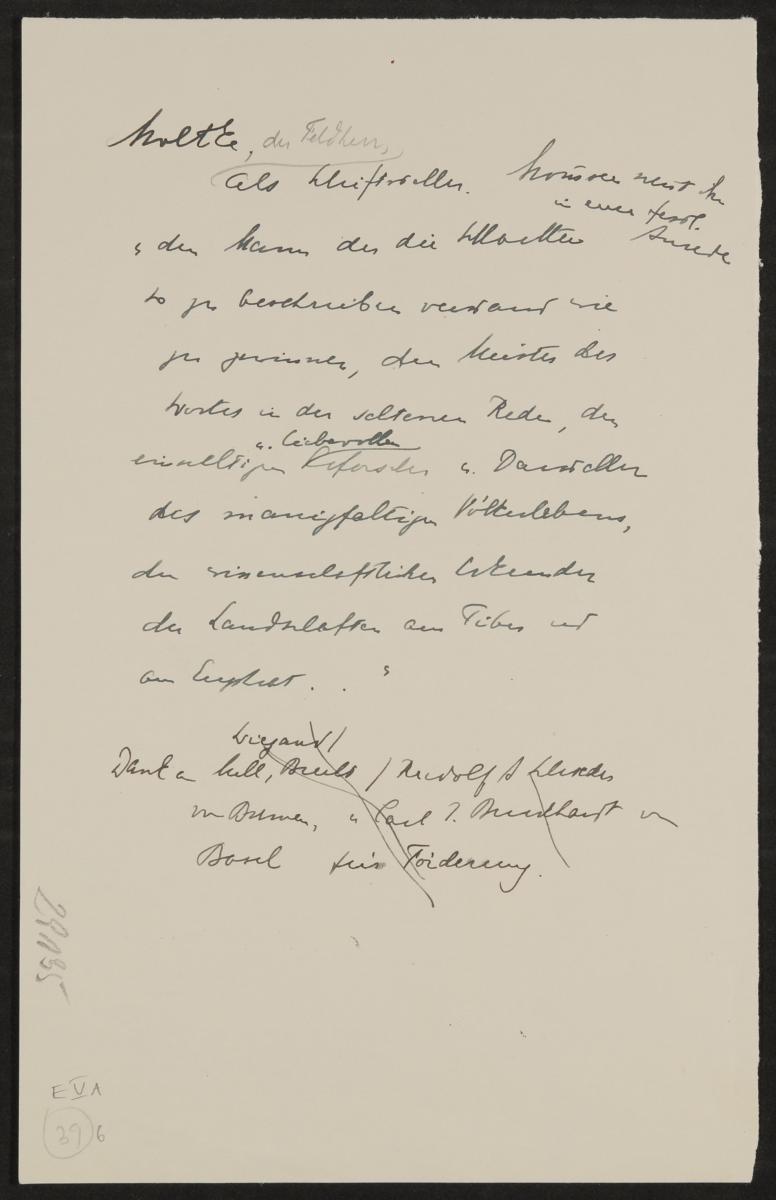 Moltke, der Feldherr,
als Schriftsteller. Mommsen nennt ihn
in einer
Anrede
„den Mann der die Schlachten
so zu beschreiben verstand wie
zu gewinnen, den Meister des
Wortes in der seltenen Rede, den
u. liebevollen
einselligen Erforscher u. Darsteller
des mannigfaltigen Völkerlebens,
den wissenschaftlichen Erkunder
der Landschaften am Tiber und
am Euphrat . . "
Wiegand /
Dank an Hell, / Rudolf A Schröder
von Bremen, u Carl J. Burckhardt von
Basel für Förderung.
29135
E V 1
39 6